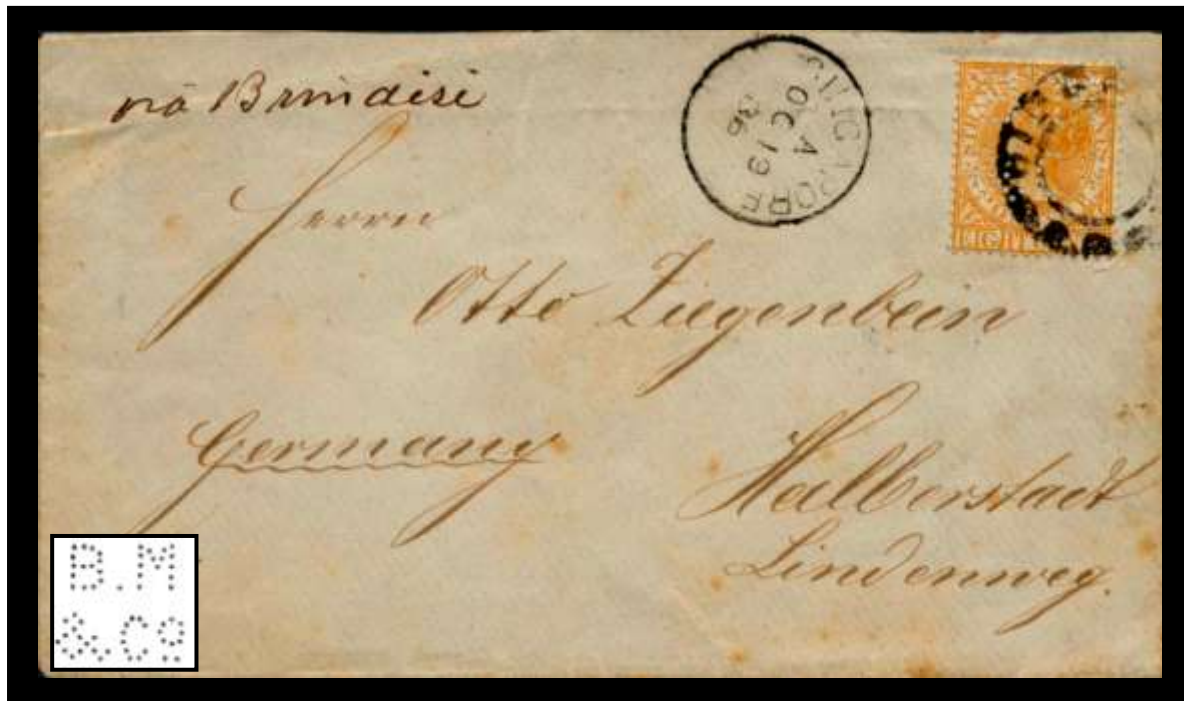 via Brindisi
SINGAPORE
A
OC 19
86
Herrn
Otto Ziegenbein
Germany
Halberstadt
Lindenweg.
B.M
&.Co